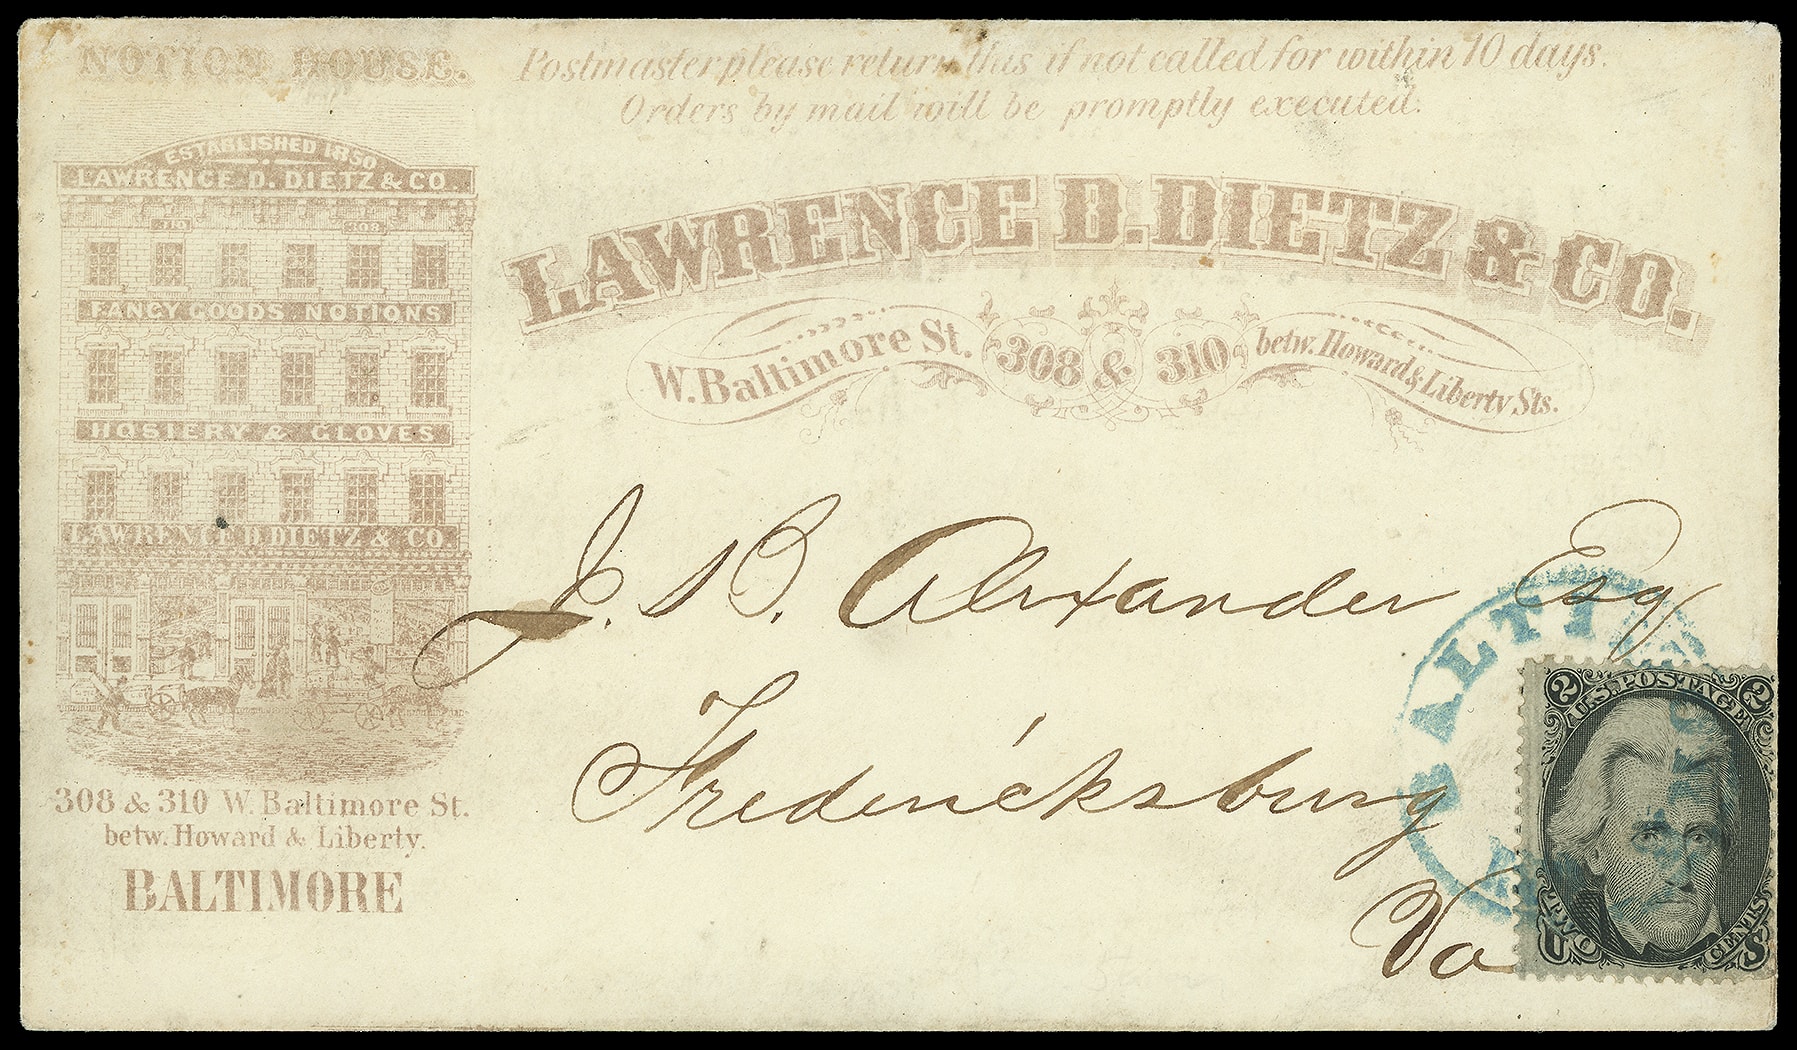 NOTION HOUSE.
ESTABLISHED 1850
LAWRENCE D. DIETZ & CO.
310 308
FANCY GOODS NOTIONS
HOSIERY & GLOVES
LAWRENCE D. DIETZ & CO.
308 & 310 W. Baltimore St.
betw. Howard & Liberty.
BALTIMORE
Postmaster please return this if not called for within 10 days.
Orders by mail will be promptly executed.
LAWRENCE D. DIETZ & CO.
W. Baltimore St. 308 & 310 betw. Howard & Liberty Sts.
J. S B. Alexander Esq
Fredericksburg
Va
BALTI
2 U.S. POSTAGE 2
U TWO CENTS S